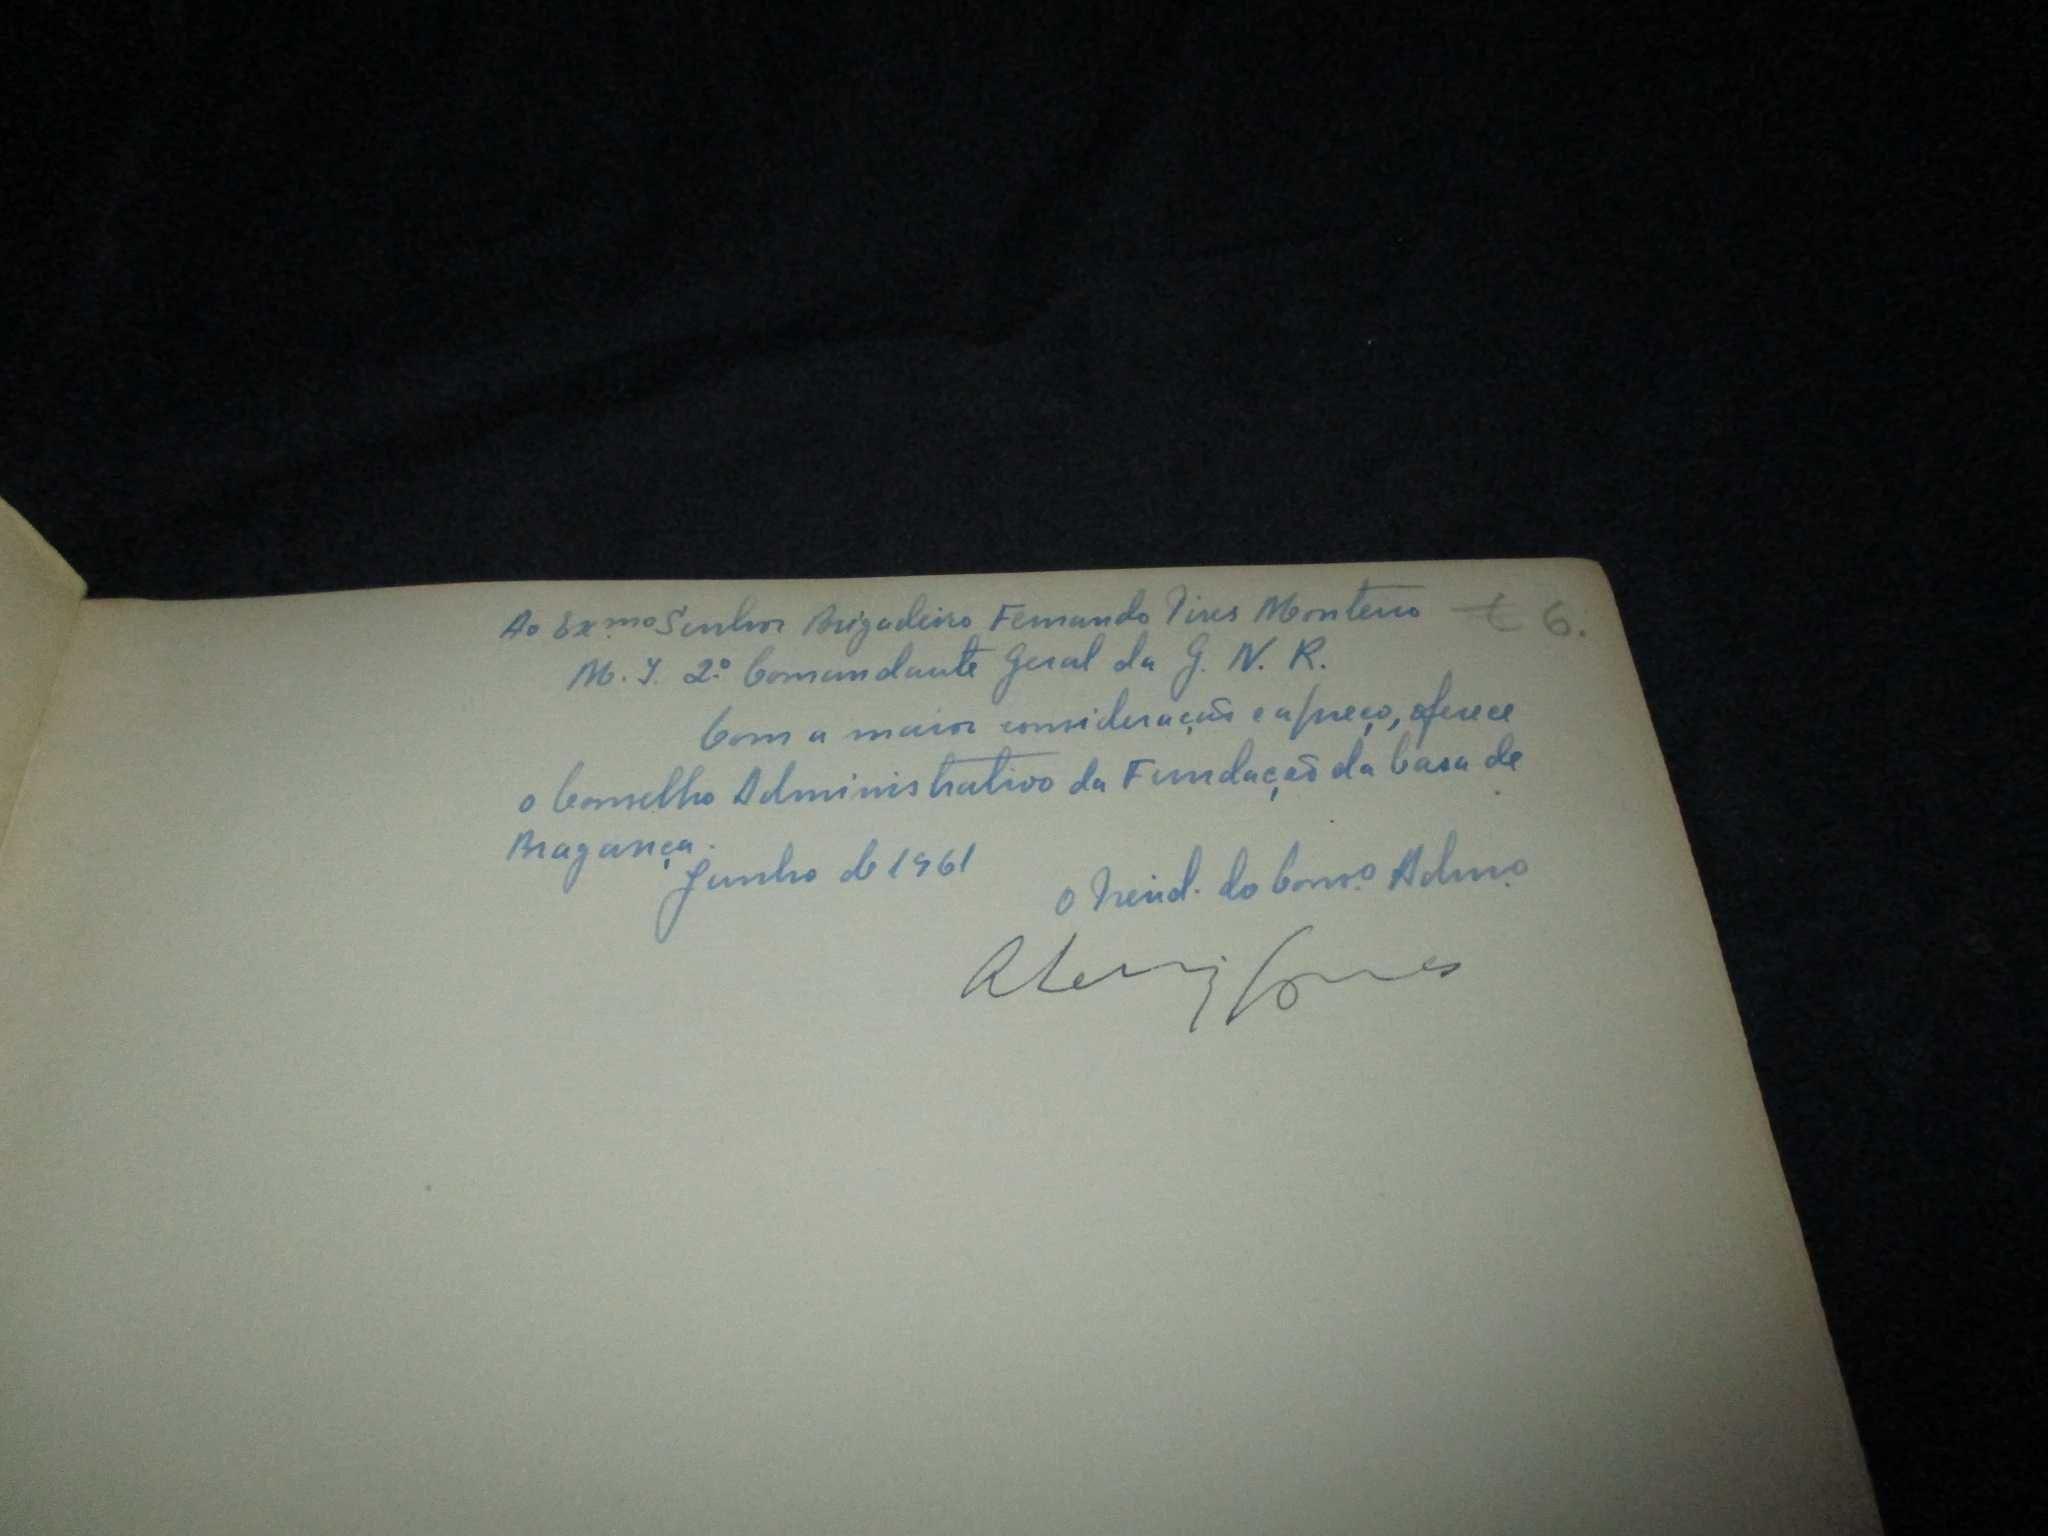 Ao Ex.mo Senhor Brigadeiro Fernando Pires Monteiro
M. I. 2.º Comandante Geral da G. N. R.
Com a maior consideração e apreço, oferece
o Conselho Administrativo da Fundação da Casa de
Bragança.
Junho de 1961
O Presid. do Cons.º Adm.º
6.